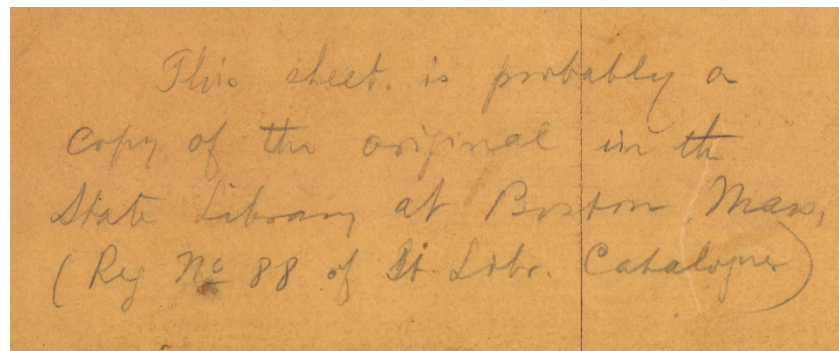 This sheet is probably a
copy of the original in the
State Library at Boston Mass,
(Reg No 88 of St. Libr. Catalogue)